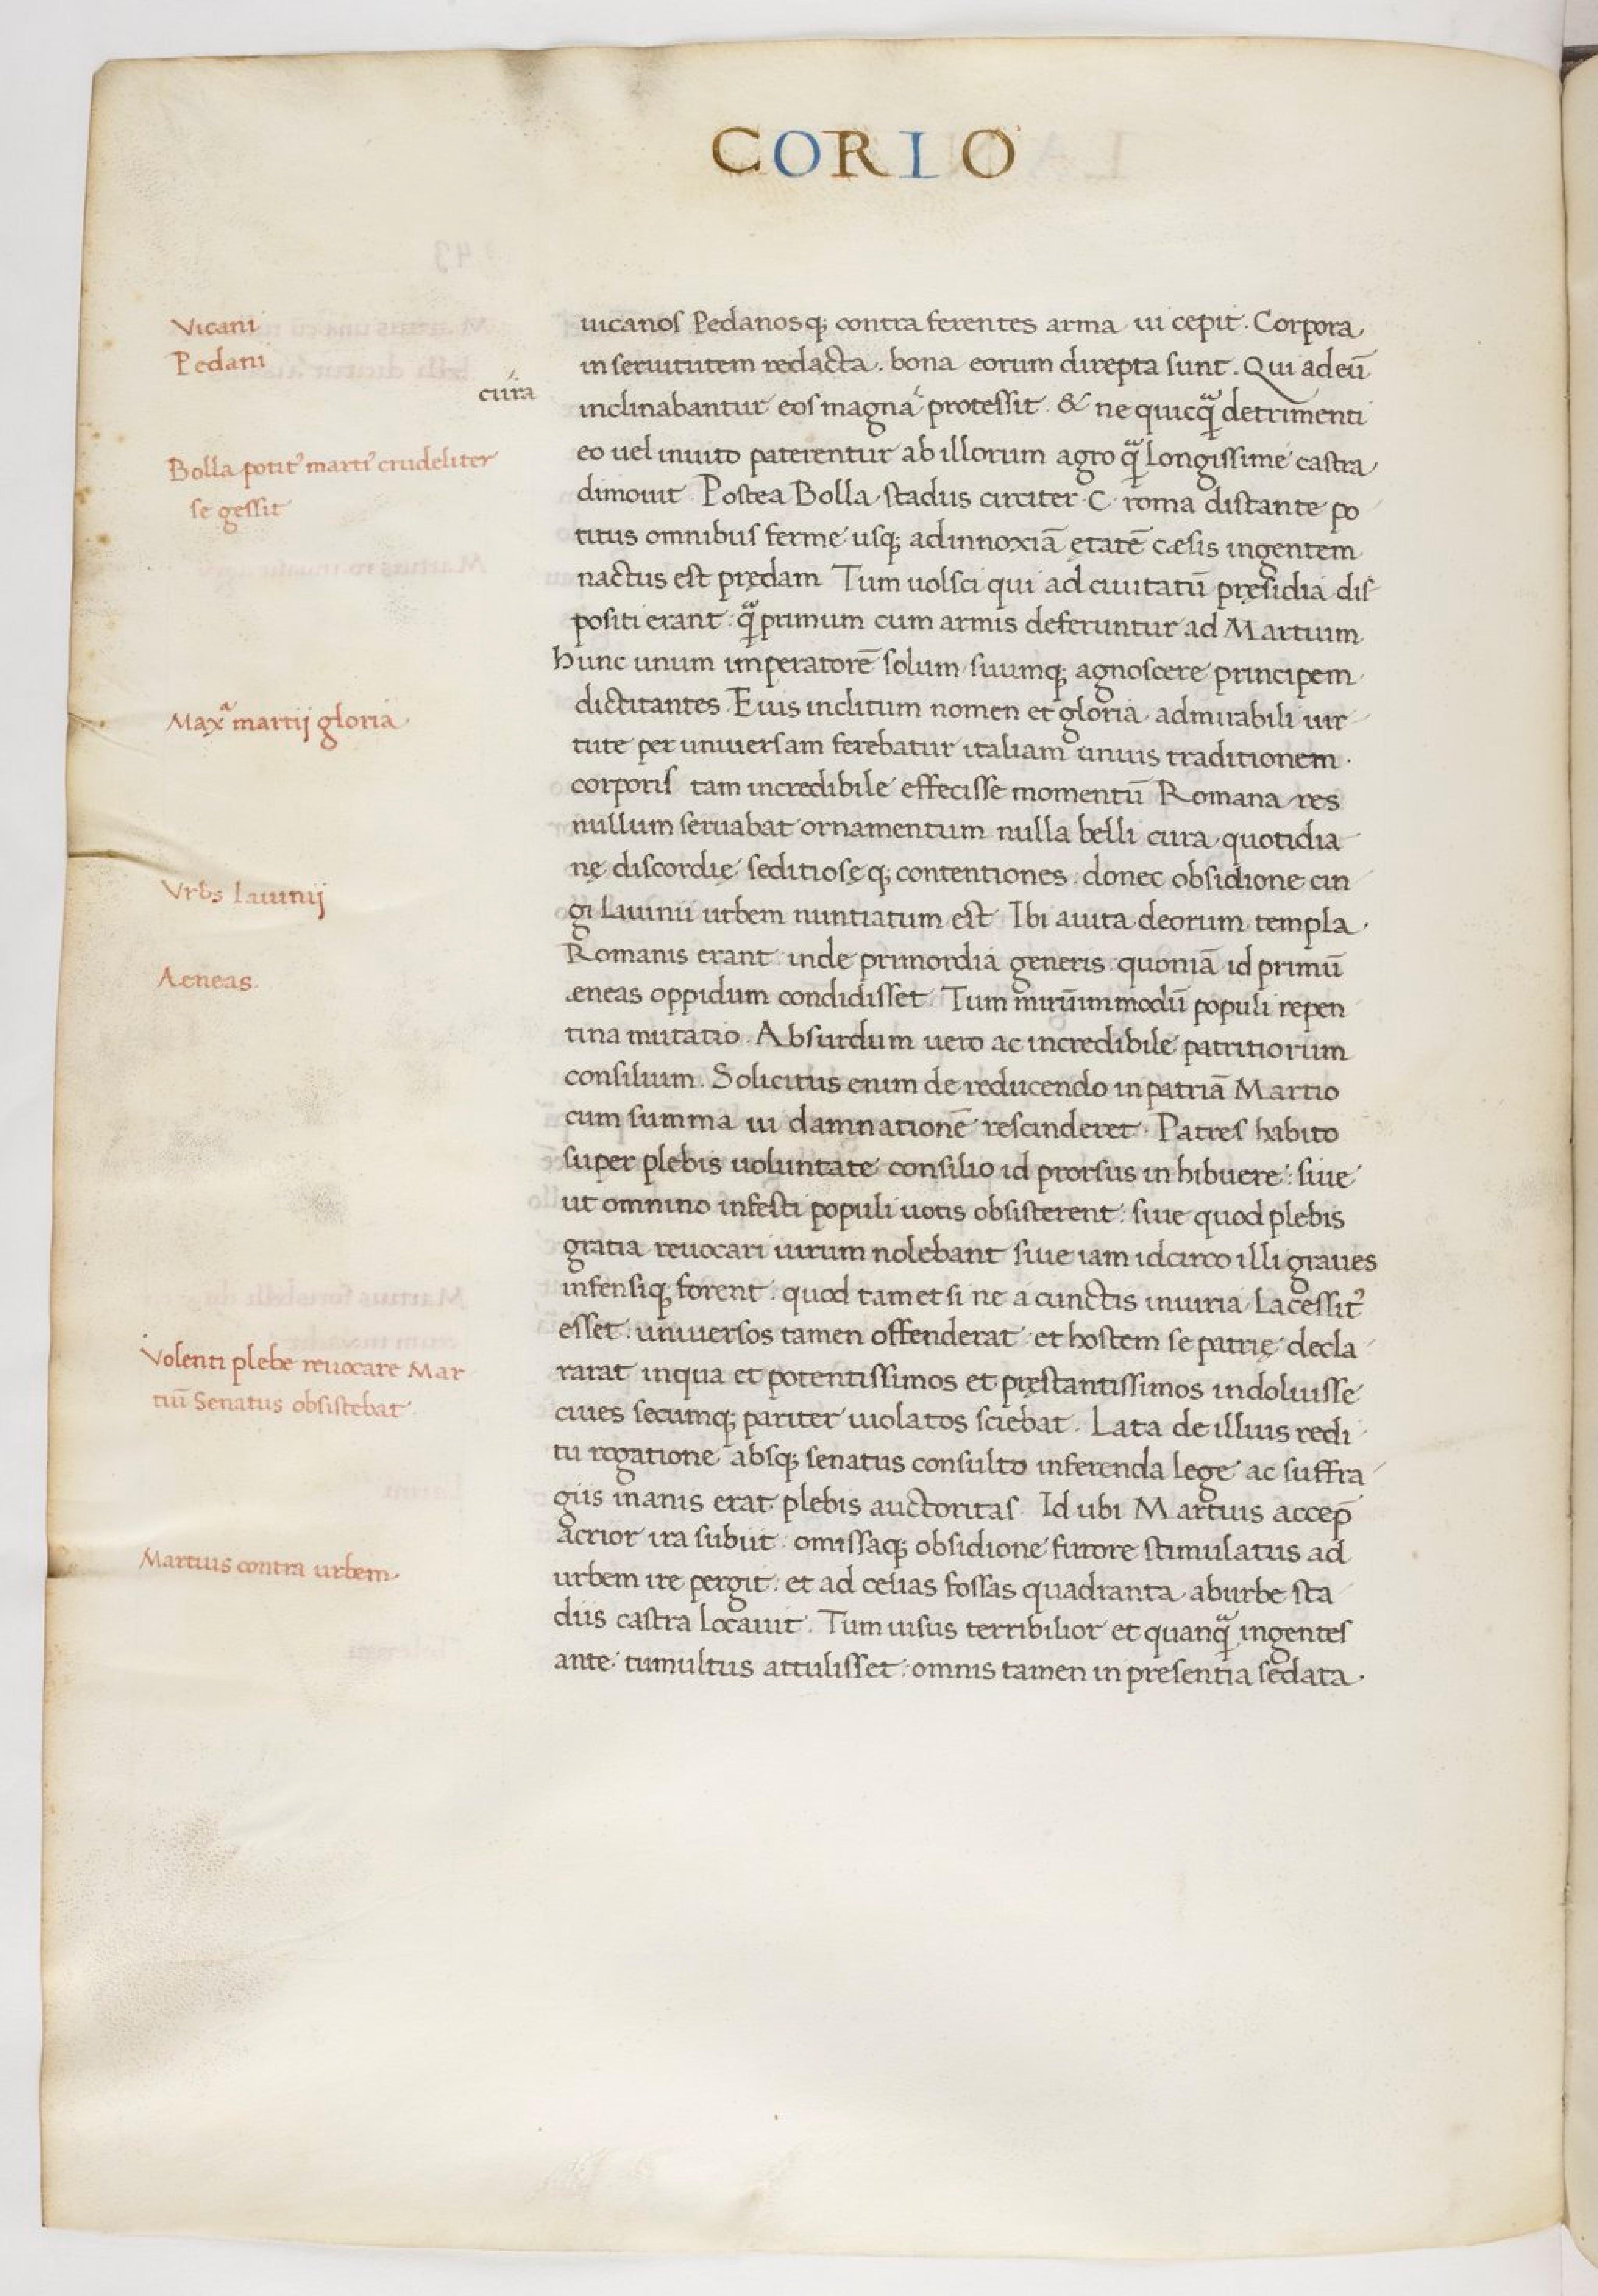 CORIO
Vicani
Pedani
cura
Bolla potit᾽ marti᾽ crudeliter
se gessit
Maxᵃ martij gloria
Vrbs lauinij
Aeneas
Volenti plebe reuocare Mar
tiū Senatus obsistebat
Martius contra urbem
uicanos Pedanosq; contra ferentes arma ui cepit. Corpora
in seruitutem redacta. bona eorum direpta sunt. Qui ad eū
inclinabantur eos magna protessit. & ne quicq̄ᵃ detrimenti
eo uel inuito paterentur ab illorum agro q̄ᵃ longissime castra
dimouit. Postea Bolla stadus circiter C roma distante po
titus omnibus ferme usq; ad innoxiā ętatē cæsis ingentem
nactus est prędam Tum uolsci qui ad ciuitatū pręsidia dis
positi erant. q̄ᵃ primum cum armis deferuntur ad Martium
hunc unum imperatorē solum suumq; agnoscere principem
dictitantes. Eius inclitum nomen et gloria admirabili uir
tute per uniuersam ferebatur italiam unius traditionem.
corporis tam incredibile effecisse momentū Romana res
nullum seruabat ornamentum nulla belli cura quotidia
nę discordię seditiosęq; contentiones. donec obsidione cin
gi Lauinii urbem nuntiatum est Ibi auita deorum templa.
Romanis erant inde primordia generis. quoniā id primū
æneas oppidum condidisset. Tum mirūimmodū populi repen
tina mutatio. Absurdum uero ac incredibile patritiorum
consilium. Solicitus enim de reducendo in patriā Martio
cum summa ui damnationē rescinderet. Patres habito
super plebis uoluntate consilio id prorsus inhibuere: siue
ut omnino infesti populi uotis obsisterent. siue quod plebis
gratia reuocari uirum nolebant siue iam idcirco illi graues
infensiq; forent. quod tametsi ne a cunctis iniuria lacessit᾽
esset. uniuersos tamen offenderat et hostem se patrię decla
rarat inqua et potentissimos et pręstantissimos indoluisse
ciues secumq; pariter uiolatos sciebat. Lata de illius redi
tu rogatione absq; senatus consulto inferenda lege ac suffra
giis inanis erat plebis auctoritas. Id ubi Martius accep̄
acrior ira subiit. omissaq; obsidione furore stimulatus ad
urbem ire pergit. et ad celias fossas quadranta ab urbe sta
diis castra locauit. Tum uisus terribilior et quanq̄ᵃ ingentes
ante tumultus attulisset: omnis tamen in presentia sedata.